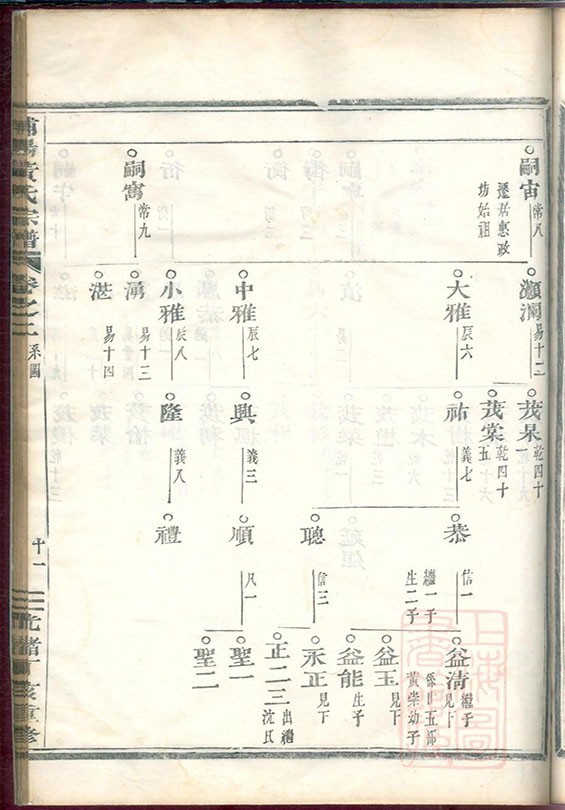 嗣宙 常八
遷居惠政
坊始祖
嗣寓 常九
灝瀾 易十二
大雅 辰六
中雅 辰七
小雅 辰八
湧 易十三
湛 易十四
茂杲 乾四十
茂棠 乾四十
五
祐 義七
興 義三
隆 義八
恭 信一
繼一子
生二子
聰 信三
順 凡一
禮
益淸 繼子
見下
黃柴幼子
益玉 見下
益能 生子
永正 見下
正二三 出繼
沈氏
聖一
聖二
黃氏宗譜
卷之二 系圖
十一
光緒丁亥重修
上海圖